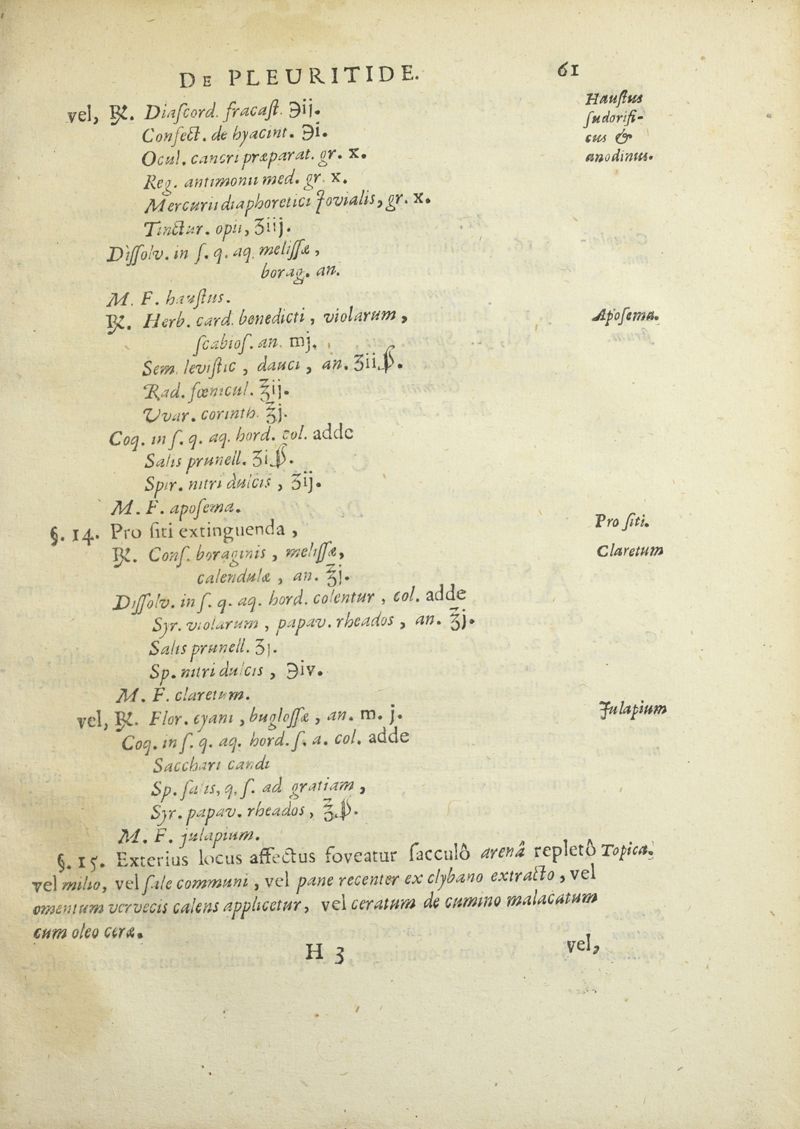 DE PLEURITIDE. 61
vel, ℞. Diaſcord. fracaſt. ℈ij.
Hauſtus
Confect. de hyacint. ℈i.
ſudorifi-
Ocul. cancri præparat. gr. x.
cus &
anodinus.
Reg. antimonii med. gr. x.
Mercurii diaphoretici Jovialis, gr. x.
Tinctur. opii, ʒiij.
Diſſolv. in ſ. q. aq. meliſſæ,
borag. an.
M. F. hauſtus.
℞. Herb. card. benedicti, violarum,
Apoſema.
ſcabioſ. an. mj.
Sem. leviſtic, dauci, an. ʒiiꝭ.
Rad. fœnicul. ℥ij.
Uvar. corinth. ℥j.
Coq. in ſ. q. aq. hord. col. adde
Salis prunell. ʒiꝭ.
Spir. nitri dulcis, ʒij.
M. F. apoſema.
§. 14. Pro ſiti extinguenda,
Pro ſiti.
℞. Conſ. boraginis, meliſſæ,
Claretum
calendulæ, an. ℥j.
Diſſolv. in ſ. q. aq. hord. colentur, col. adde
Syr. violarum, papav. rheados, an. ℥j.
Salis prunell. ʒj.
Sp. nitri dulcis, ℈iv.
M. F. claretum.
vel, ℞. Flor. cyani, bugloſſæ, an. m. j.
Julapium
Coq. in ſ. q. aq. hord. ſ. a. col. adde
Sacchari candi
Sp. ſalis, q. ſ. ad gratiam,
Syr. papav. rheados, ℥ꝭ.
M. F. julapium.
§. 15. Exterius locus affectus foveatur ſacculô arenâ repletô Topica.
vel milio, vel ſale communi, vel pane recenter ex clybano extracto, vel
omentum vervecis calens applicetur, vel ceratum de cumino malacatum
cum oleo ceræ.
H 3 vel,